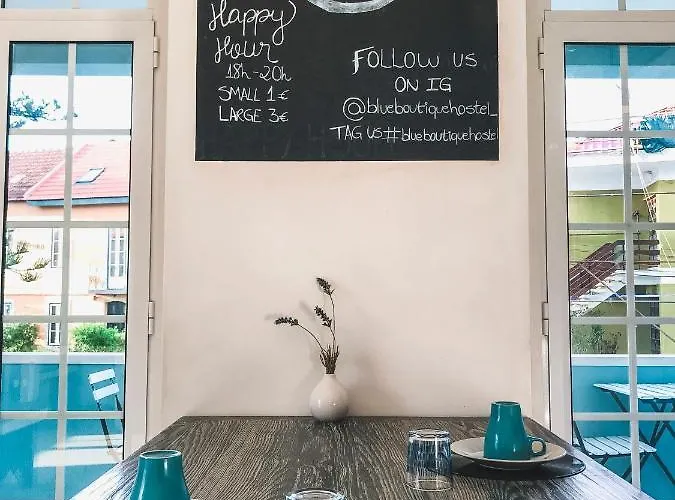 Happy
Hour
18h-20h
SMALL 1€
LARGE 3€
FOLLOW US
ON IG
@blueboutiquehostel_
TAG US #blueboutiquehostel